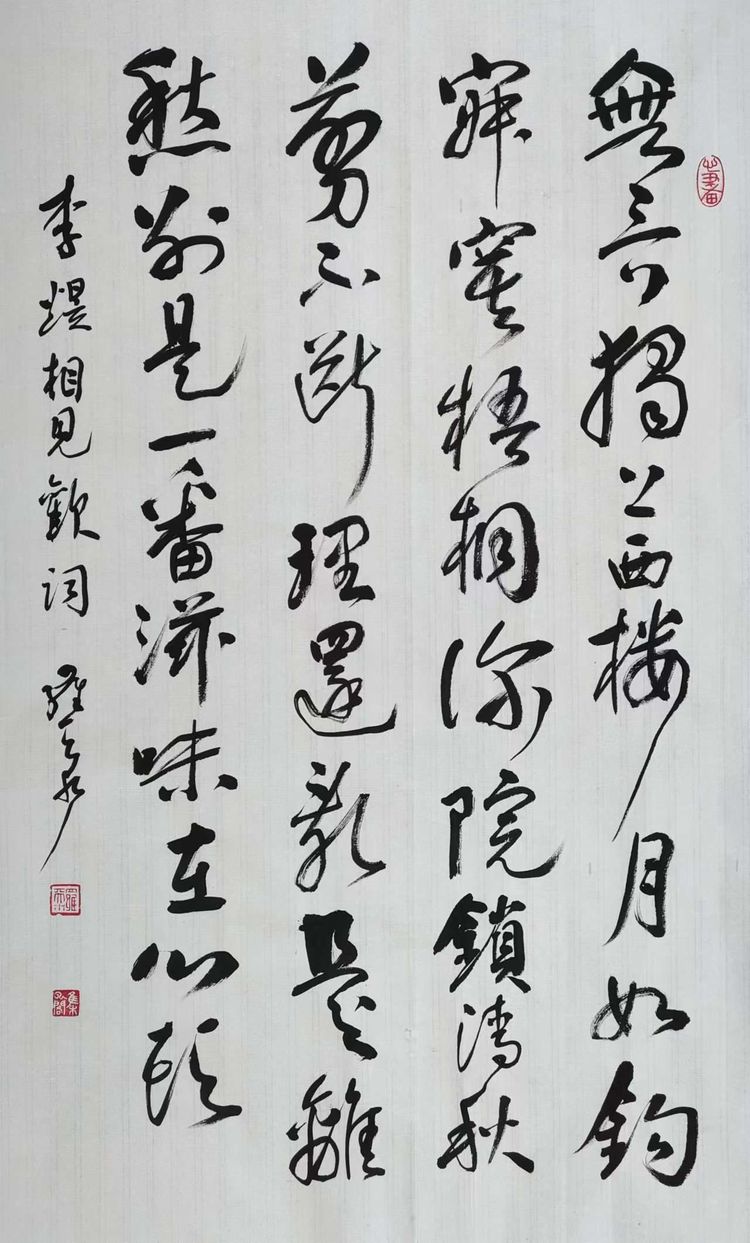 無言獨上西楼月如鈎
寂寞梧桐深院鎖清秋
剪不斷理還亂是離
愁別是一番滋味在心頭
李煜相見歡詞